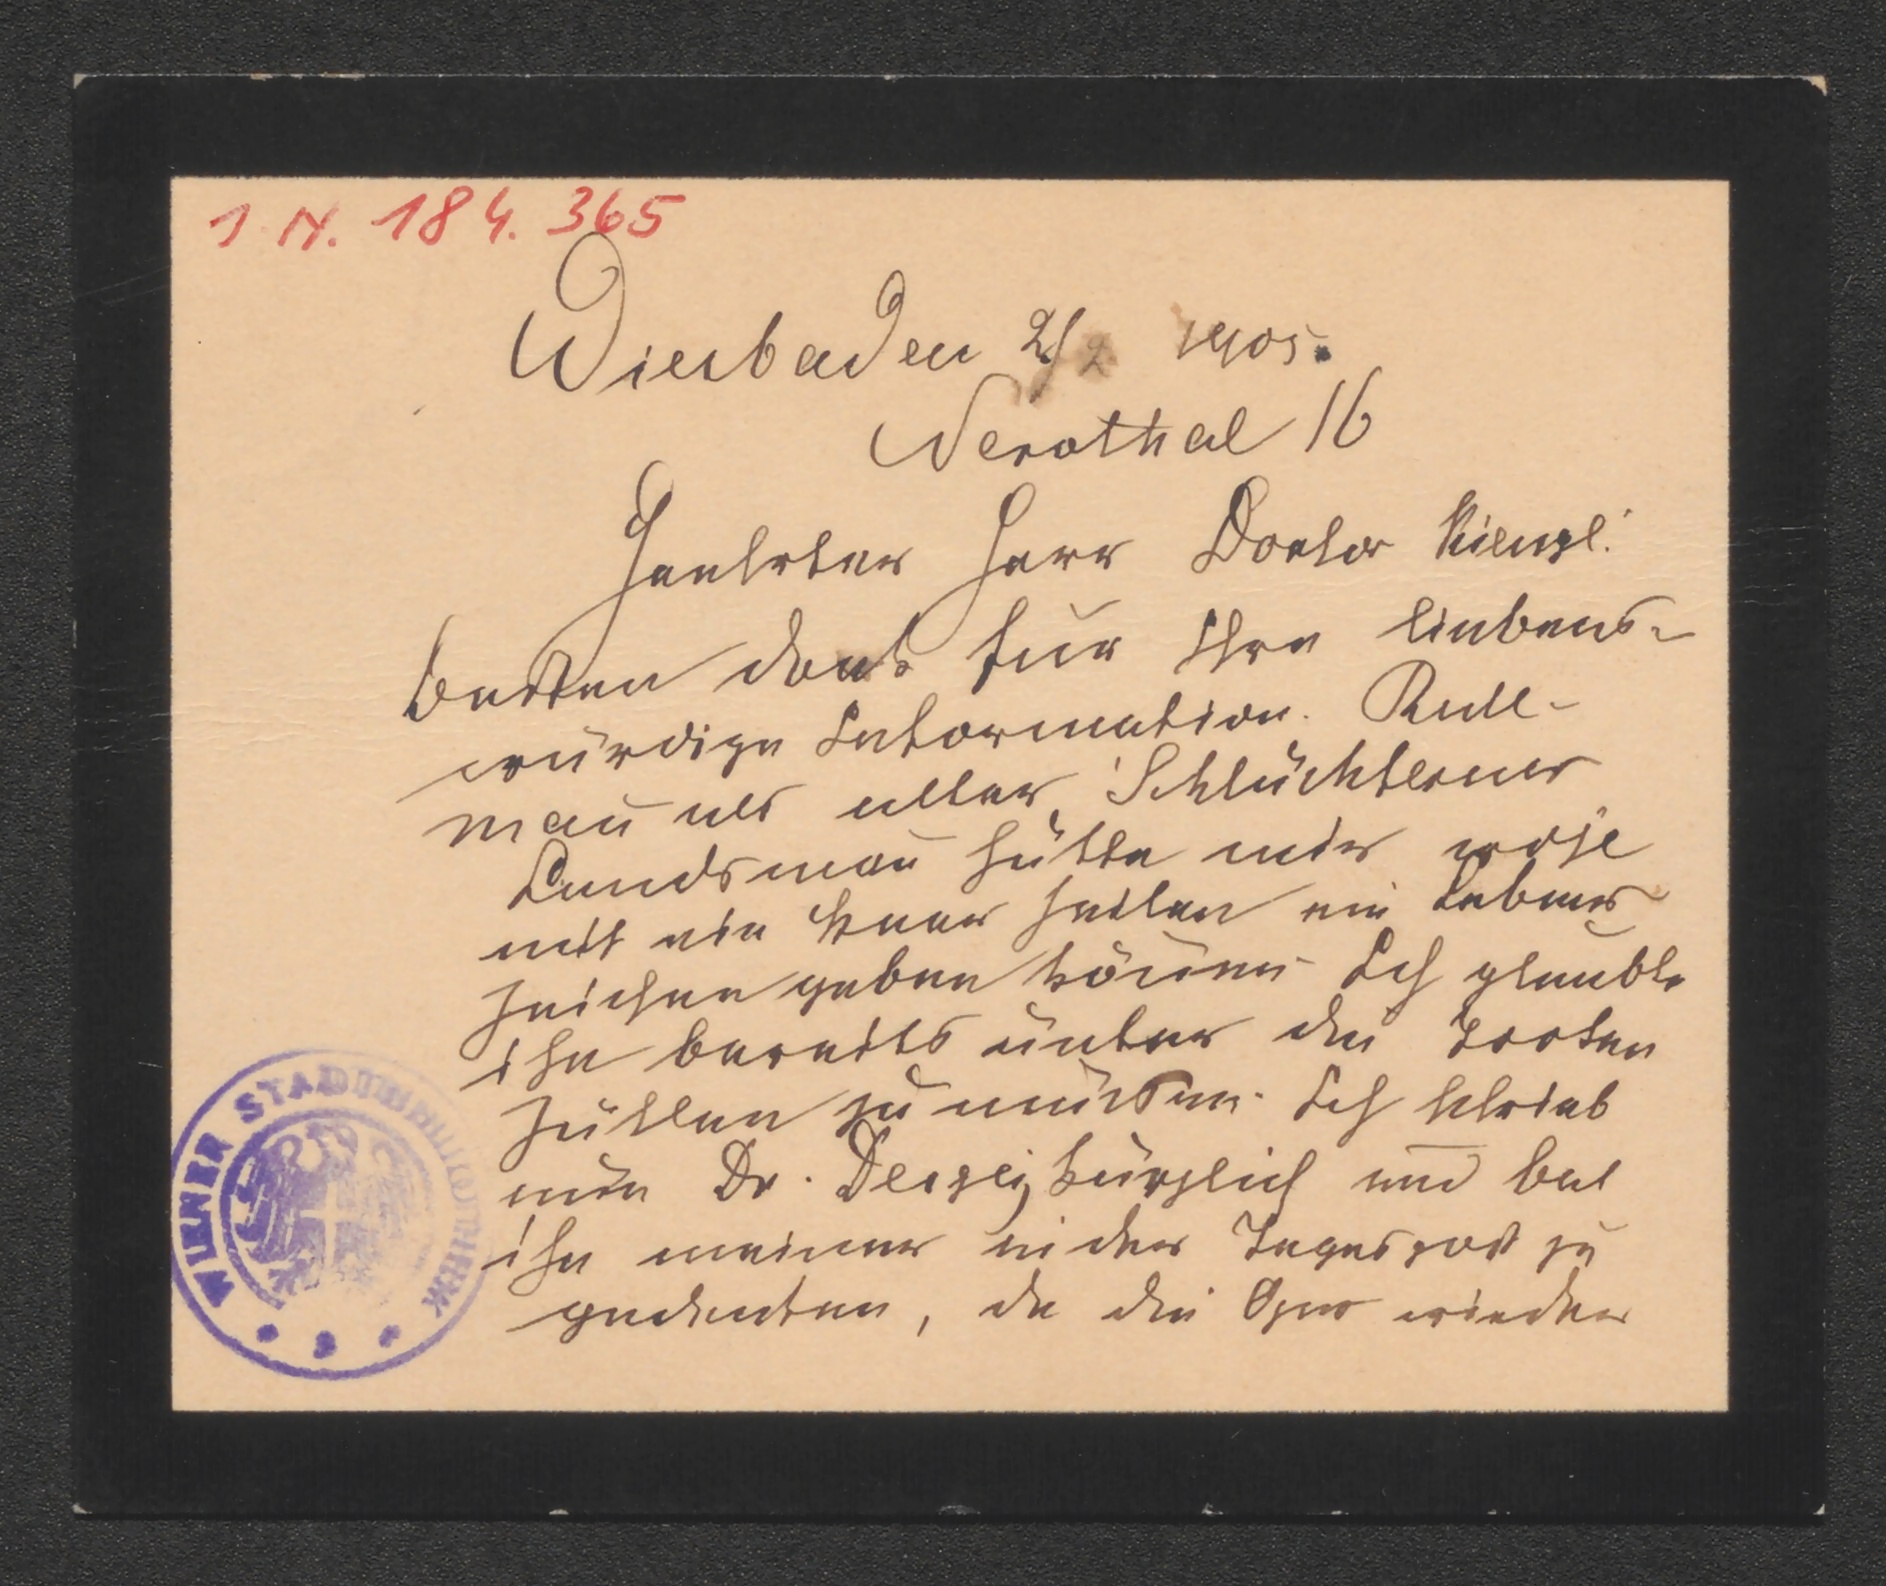 I. N. 184.365
Wiesbaden 2/2 1905.
Nerothal 16
Geehrter Herr Doctor Kienzl!
Besten Dank für Ihre liebens-
würdige Information. Rull-
mañ als alter Schlüchterner
Landsmañ hätte mir wohl
mit ein Paar Zeilen ein Lebens
zeichen geben köñen. Ich glaubte
ihn bereits unter die Todten
zählen zu müssen. Ich schrieb
nun Dr. kürzlich und bat
ihn meiner in der Tagespost zu
gedenken, da die Oper wieder
WIENER STADTBIBLIOTHEK